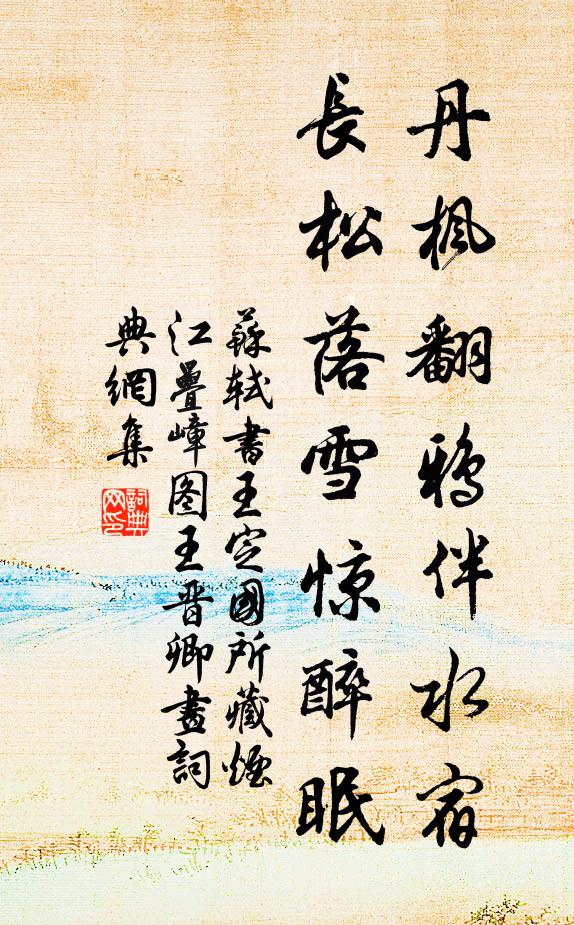 丹枫翻鸦伴水宿
長松落雪惊醉眠
蘇轼書王定國所藏煙
江疊嶂图王晋卿畫詞
典網集
詞典
网印